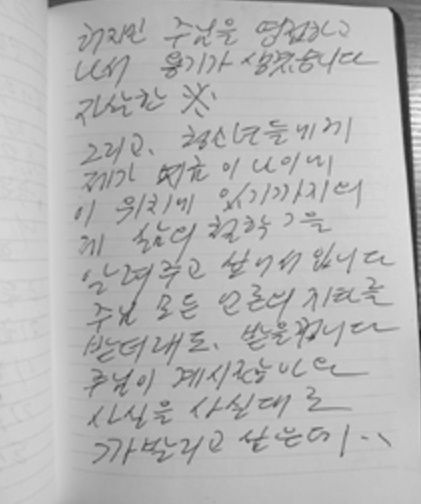 하지만 주님을 영접하고
나서 용기가 생겼습니다
자살한 ※.
그리고, 청소년들에게
제가 이 나이에
이 위치에 있기까지의
제 삶의 철학 을
알려주고 싶어서 입니다
주님 모든 언론의 지탄을
받더래도, 받을겁니다
주님이 계시
사실을 사실대로
까발리고 싶은데 . .